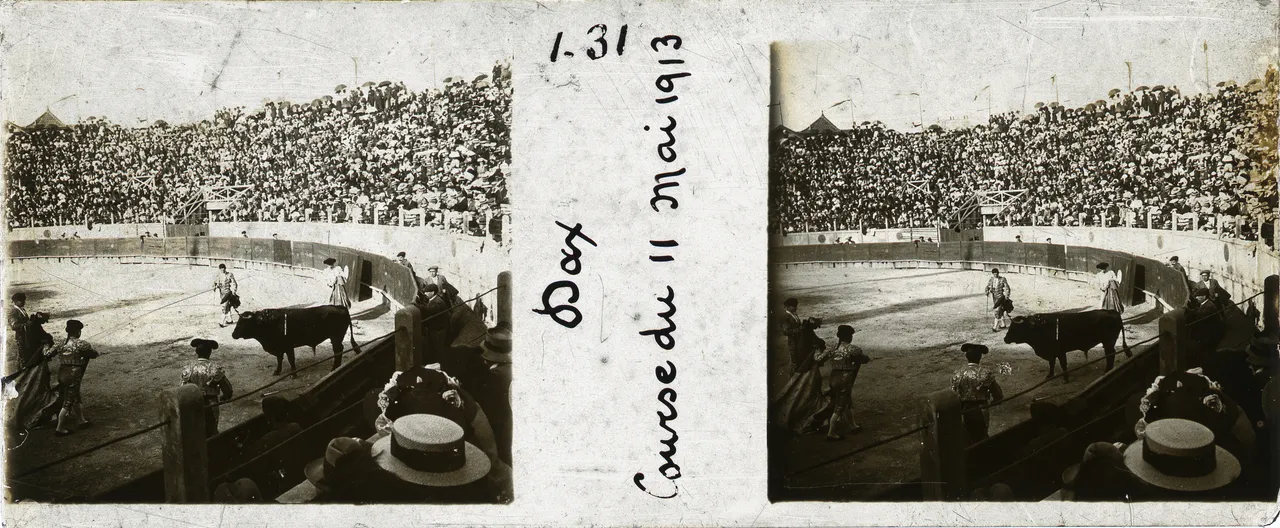 1-31
Dax
Course du 11 Mai 1913